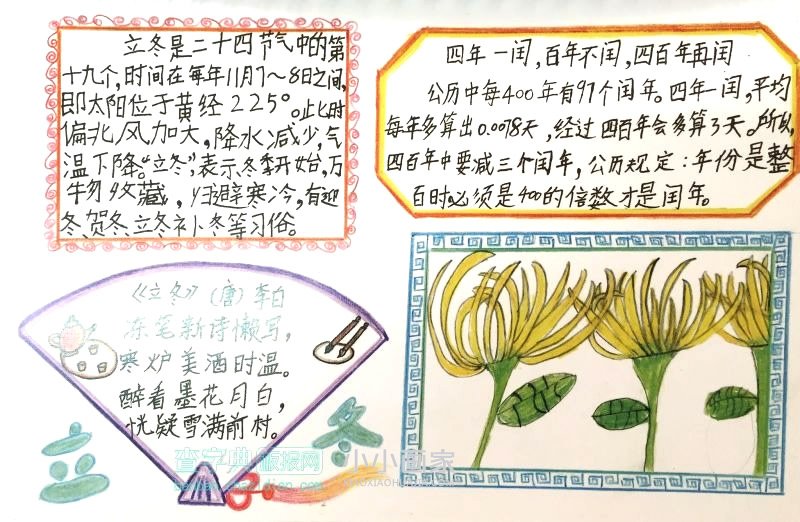 立冬是二十四节气中的第
十九个，时间在每年11月7～8日之间，
即太阳位于黄经225°。此时
偏北风加大，降水减少，气
温下降。“立冬”，表示冬季开始，万
物收藏，归避寒冷，有迎
冬、贺冬、立冬补冬等习俗。
四年一闰，百年不闰，四百年再闰
公历中每400年有97个闰年。四年一闰，平均
每年多算出0.0078天，经过四百年会多算3天。所以，
四百年中要减三个闰年，公历规定：年份是整
百时必须是400的倍数才是闰年。
《立冬》（唐）李白
冻笔新诗懒写，
寒炉美酒时温。
醉看墨花月白，
恍疑雪满前村。
立冬
查字典手抄报网
小小画家